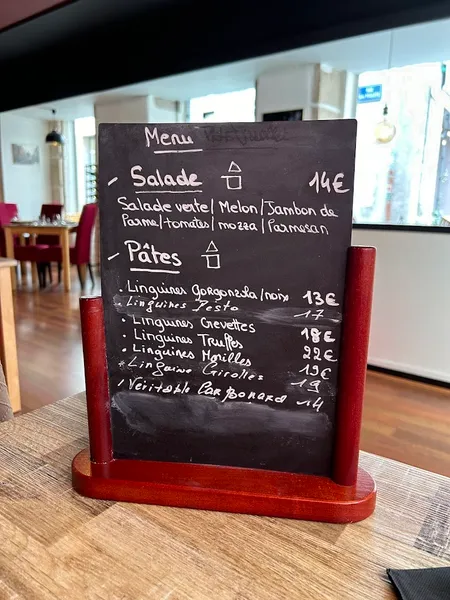 Menu
Salade 14€
Salade verte / Melon / Jambon de
Parme / tomates / mozza / Parmesan
Pâtes
. Linguines gorgonzola / noix 13€
. Linguines Pesto 17
. Linguines Crevettes 18€
. Linguines Truffes 22€
. Linguines Morilles 19€
. Linguine Girolles 19
/ Véritable Carbonara 14